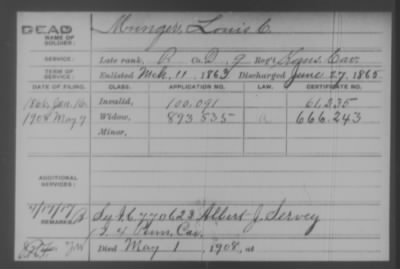 DEAD
NAME OF SOLDIER: Munger, Louis C.
SERVICE: Late rank, P Co. D, 9 Reg't Kans. Cav.
TERM OF SERVICE: Enlisted Mch. 11, 1863 Discharged June 27, 1865
DATE OF FILING. CLASS. APPLICATION NO. LAW. CERTIFICATE NO.
1866, Jan. 16 Invalid, 100.091 61,235
1908 May 9 Widow, 893.535 666.243
Minor,
ADDITIONAL SERVICES:
REMARKS: 770623 Albert J. Servey
Cav.
Died May 1, 1908, at